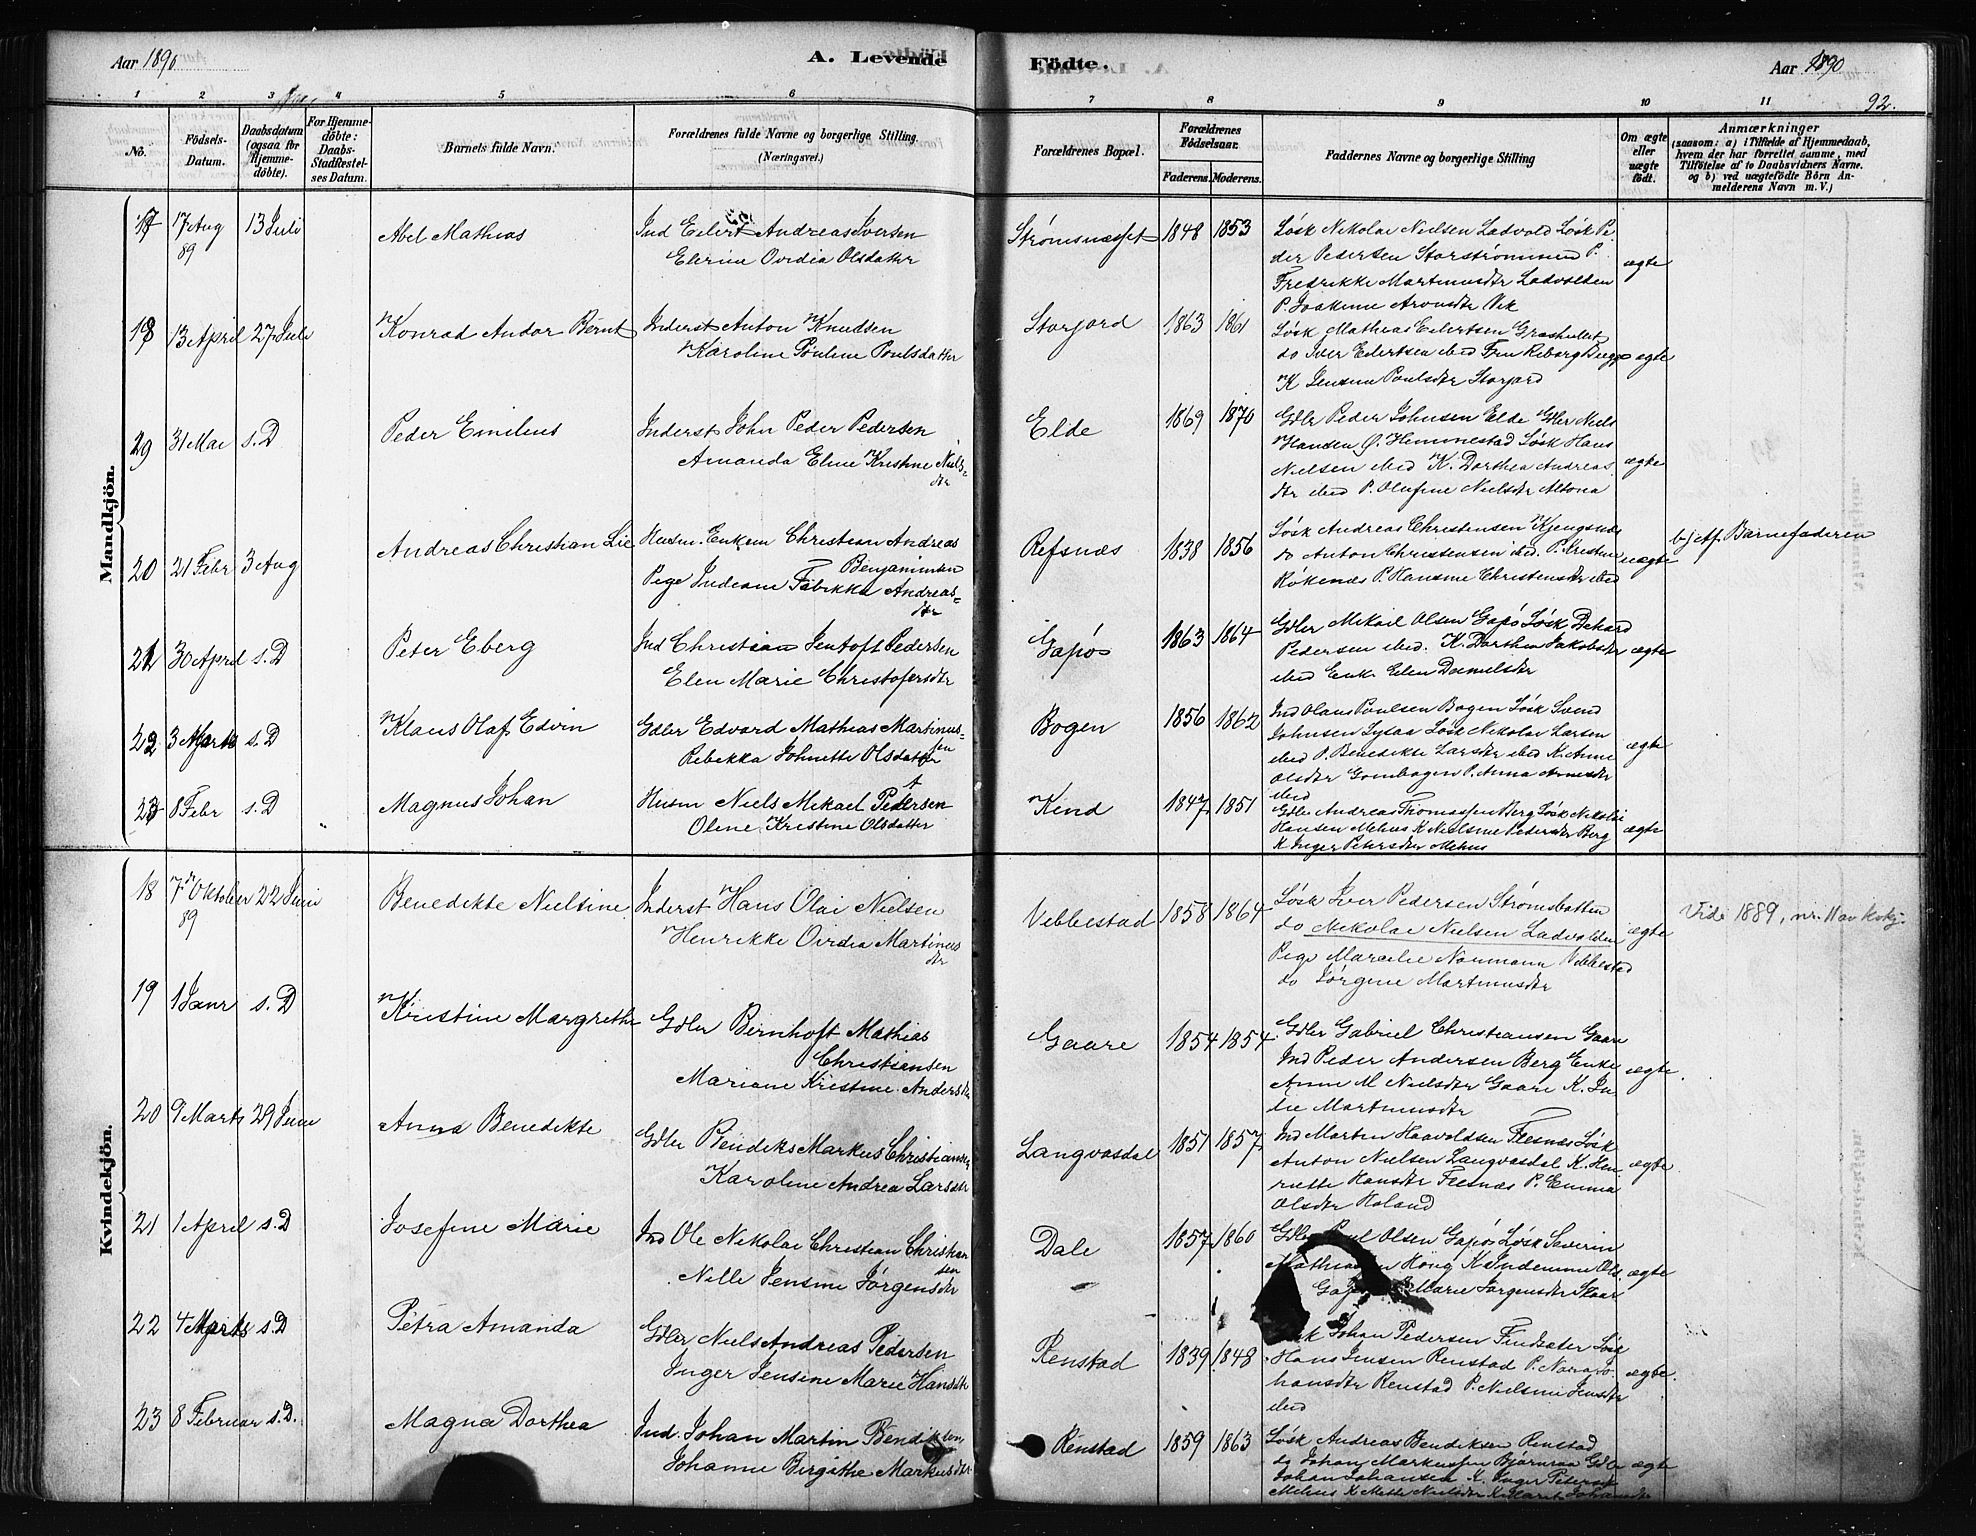 Aar 1890
A. Levende
Fødte.
Aar 1890
92.
1 2 3 4 5 6 7 8 9 10 11
No.
Födsels-Datum.
Daabsdatum (ogsaa for Hjemme-döbte).
For Hjemme-döbte: Daabs-Stadfæstel-ses Datum.
Barnets fulde Navn.
Forældrenes fulde Navne og borgerlige Stilling.
(Næringsvei.)
Forældrenes Bopæl.
Forældrenes Födselsaar.
Faderens. Moderens.
Faddernes Navne og borgerlige Stilling
Om ægte eller uægte födt.
Anmærkninger
(saasom: a) i Tilfælde af Hjemmedaab, hvem der har forrettet samme, med Tilföielse af to Daabsvidners Navne. og b) ved uægtefödte Börn An-melderens Navn m. V.)
Mandkjön.
17 17 Aug 89 13 Juli Abel Mathias
Ind Eilert Andreas Iversen
Elerine Ovidia Olsdatter
Strømsnæsset 1848 1853
Løsk Nikolai Nielsen Ladvold Løsk Pe-
der Pedersen Storstrømmen P.
Fredrikke Martinusdtr Ladvolden
P. Joakime Aronsdtr Vik
ægte
18 13 April 27 Juli Konrad Andor Bernt
Inderst Anton Knudsen
Karoline Pauline Poulsdatter
Storjord 1863 1861
Løsk Mathias Eilertsen Grasholtet
do Iver Eilertsen ibid
K Jensine Poulsdtr Storjord
ægte
29 31 Mai s.D Peder Emilius
Inderst John Peder Pedersen
Amanda Eline Kristine Niels-
dtr
Elde 1869 1870
Gdbr Peder Johnsen Elde Gdbr Niels
Hansen Ø. Hemmestad Løsk Hans
Nielsen ibid K. Dorthea Andreas
dtr ibid P. Olufine Nielsdtr Altona
ægte
20 21 Febr 3 Aug Andreas Christian Lie
Husm. Enkem Christian Andreas
Benjaminsen
Pige Indiane Fabrikka Andreas-
dtr
Refsnæs 1838 1856
Løsk Andreas Christensen Kjengsnæs
do Anton Christensen ibid. P. Kristine
Røkenæs P. Hansine Christensdtr ibid
uægte
b) Af. Barnefaderen
21 30 April s.D Peter Eberg
Ind Christian Jentoft Pedersen
Elen Marie Christofersdtr
Gapø 1863 1864
Gdbr Mikail Olsen Gapø Løsk Dehard
Pedersen ibid. K. Dorthea Jakobsdtr
ibid Enke Elen Danielsdtr
ægte
22 3 Marts s.D Klaus Olaf Edvin
Gdbr Edvard Mathias Martinus-
sen
Rebekka Johnette Olsdatter
Bogen 1856 1862
Ind Olaus Poulsen Bogen Løsk Svend
Johnsen Lysaa Løsk Nikolai Larsen
ibid P. Benedikte Larsdtr ibid K Anne
Olsdtr Gombogen P. Anna Arnesdtr
ibid
ægte
23 8 Febr s.D Magnus Johan
Husm Niels Mikael Pedersen
Oline Kristine Olsdatter
Kind 1847 1851
Gdbr Andreas Thomassen Berg Løsk Nikolai
Hansen Melius K Nielsine Pedersdtr Berg
K Inger Petersdtr Mehus
ægte
Kvindekjön.
18 7 Oktober 89 22 Juni Benedikte Nielsine
Inderst Hans Olai Nielsen
Henrikke Ovidia Martinus
dtr
Vebbestad 1858 1864
Løsk Iver Pedersen Strømsbotten
do Nikolai Nielsen Ladvolden
Pige Marcelie Normann Vebbestad
do Jørgine Martinusdtr
ægte
Vide 1889, nr. 11 av kvkj.
19 1 Janr s.D Kristine Margrethe
Gdbr Bernhoft Mathias
Christiansen
Mariane Kristine Andersdtr
Gaare 1854 1854
Gdbr Gabriel Christiansen Gaare
Ind Peder Andersen Berg Enke
Anne M Nielsdtr Gaare K. Ju-
lie Martinusdtr
ægte.
20 9 Marts 29 Juni Anna Benedikte
Gdbr Bendiks Markus Christiansen
Karoline Andrea Larsdtr
Langvasdal 1851 1857
Ind Morten Haavoldsen Flesnæs Løsk
Anton Nielsen Langvasdal K. Hen
riette Hansdtr Flesnæs P. Emma
Olsdtr Holand
ægte
21 1 April s.D Josefine Marie
Ind Ole Nikolai Christian Christian
sen
Nille Jensine Jørgensdtr
Dale 1857 1860
Gdbr Poul Olsen Gapø Løsk Severin
Høug K Indianne Ols
Marie Jørgensdtr Skaar
ægte
22 4 Marts s.D Petra Amanda
Gdbr Niels Andreas Pedersen
Inger Jensine Marie Hansdtr
Renstad 1839 1848
Johan Pedersen Finsæter Løsk
Hans Jensen Renstad P. Nara Jo-
hansdtr Renstad P. Nielsine Jensdtr
ibid
ægte.
23 8 Februar s.D. Magna Dorthea
Ind. Johan Martin Bendiksen
Johanne Birgithe Markusdtr
Renstad 1859 1863
Løsk Andreas Bendiksen Renstad
do Johan Markussen Bjørnraa Gdbr
Johan Johansen K. Inger Petersdtr
Mehus K Mette Nielsdtr K Marit Johansdtr
ægte